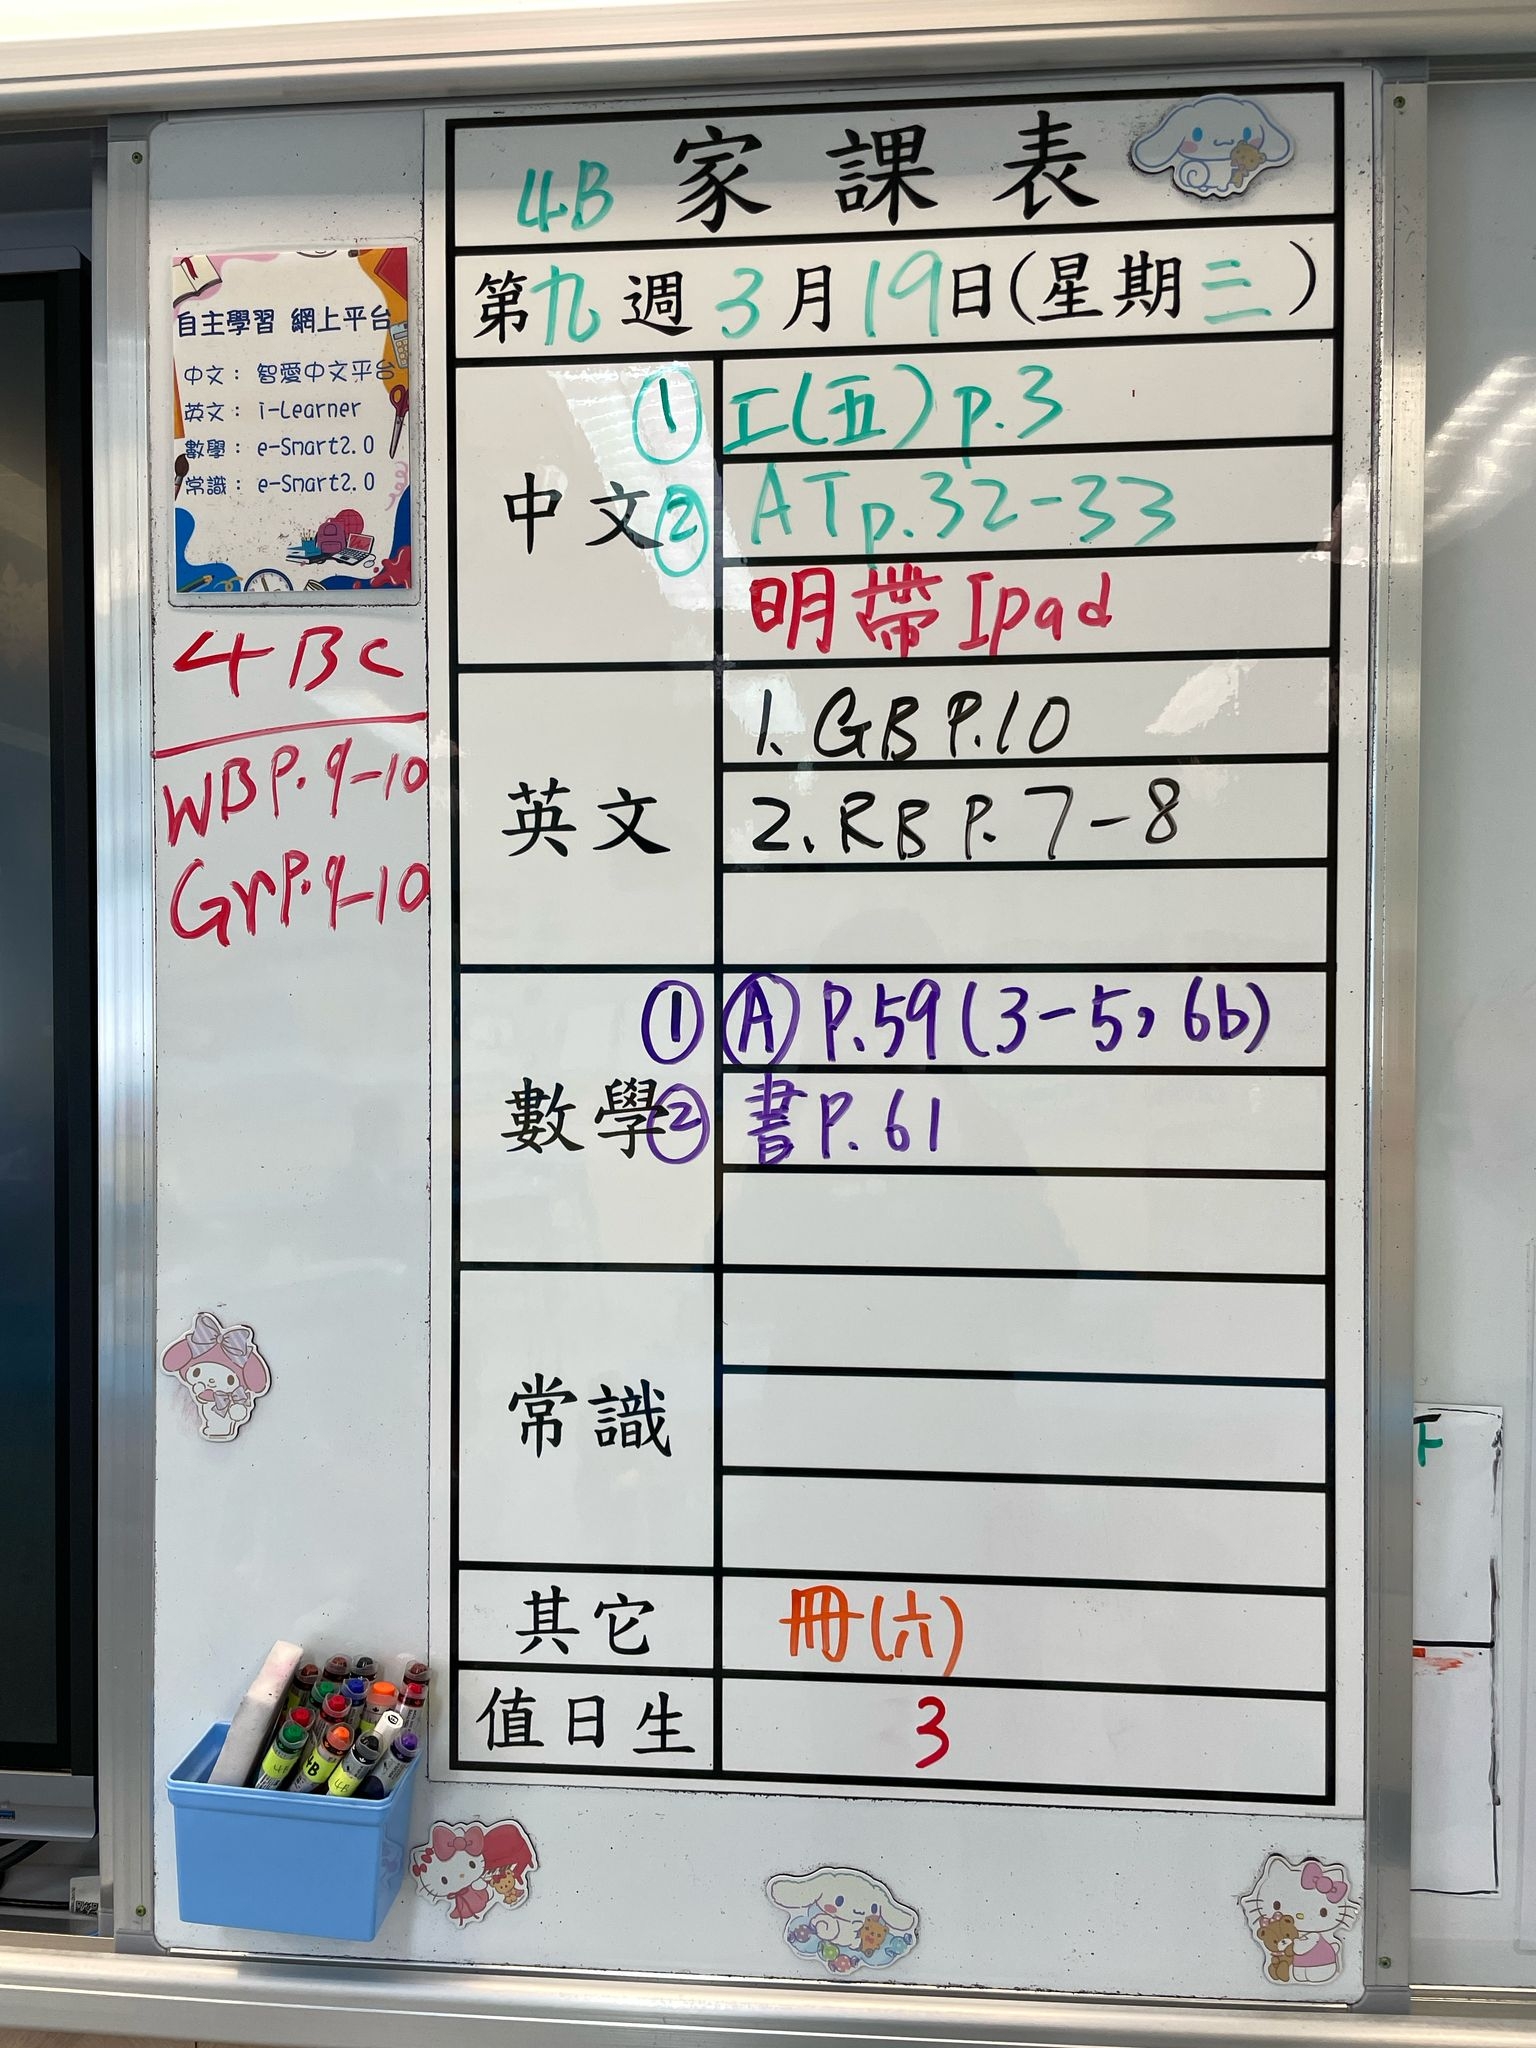 4B 家課表
第九週 3月19日(星期三)
自主學習 網上平台
中文： 智愛中文平台
英文： i-Learner
數學： e-Smart2.0
常識： e-Smart2.0
4BC
WB P.9-10
Gr P.9-10
中文
① 工(五) p.3
② AT p.32-33
明帶Ipad
英文
1. GB P.10
2. RB P.7-8
數學
① Ⓐ P.59(3-5, 6b)
② 書P.61
常識
其它
冊(六)
值日生
3